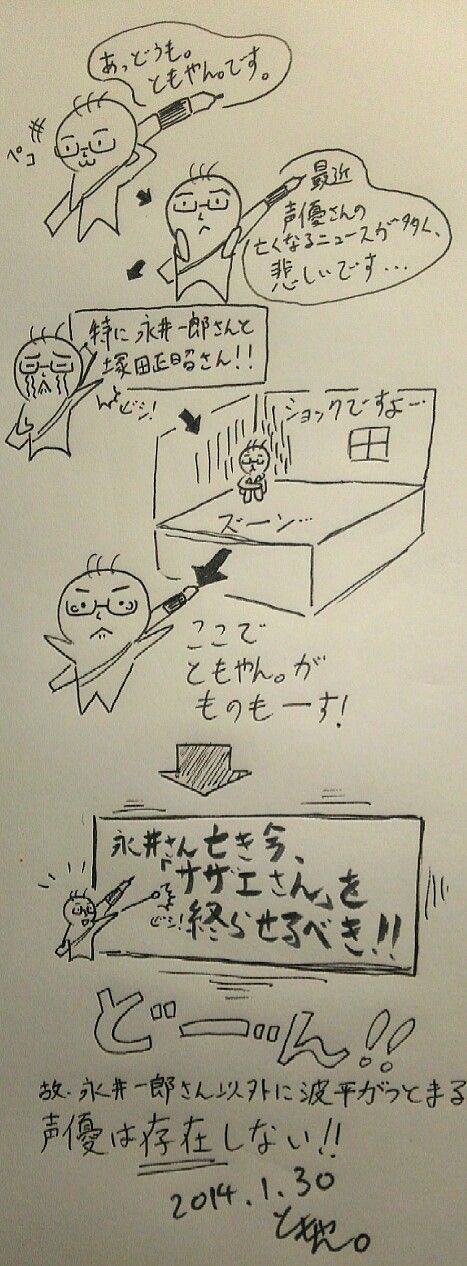 あっどうも。
ともやん。です。
ペコ
最近
声優さんの
亡くなるニュースが多く、
悲しいです…
特に永井一郎さんと
塚田正昭さん!!
ビシ!
ショックですよ…
ズーン…
ここで
ともやん。が
ものもーす!
永井さん亡き今、
「サザエさん」を
終らせるべき!!
ビシ!
どーーん!!
故・永井一郎さん以外に波平がつとまる
声優は存在しない!!
2014.1.30
ともやん。